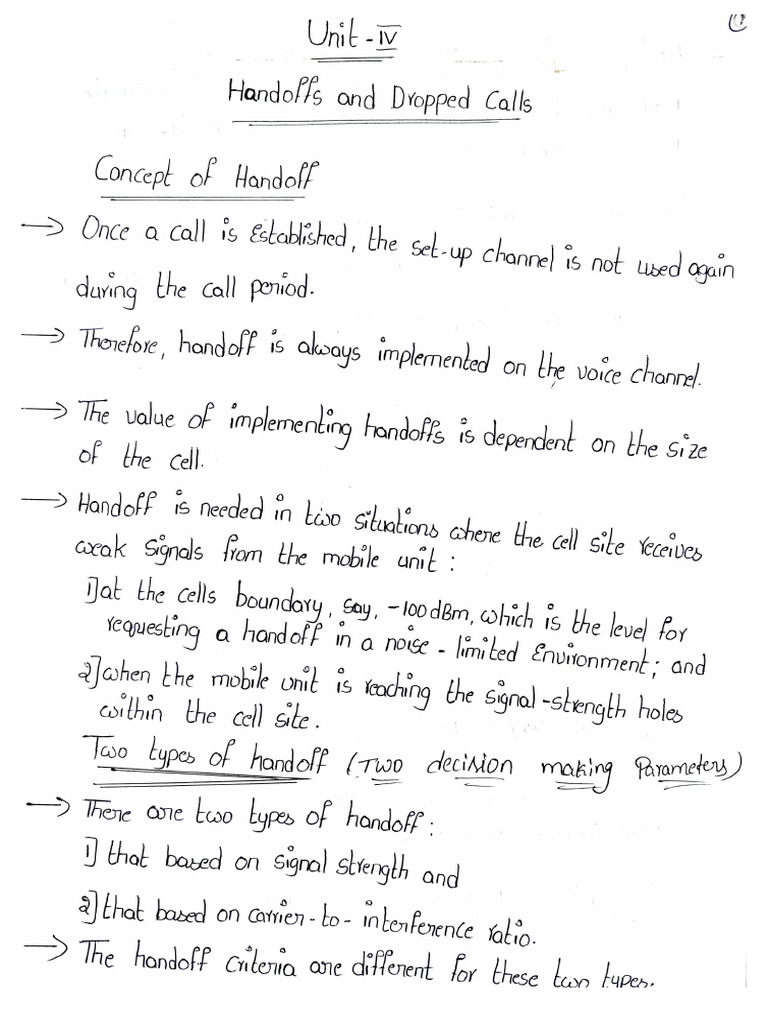 Unit - IV
Handoffs and Dropped Calls
Concept of Handoff
→ Once a call is Established, the set-up channel is not used again
during the call period.
→ Therefore, handoff is always implemented on the voice channel.
→ The value of implementing handoffs is dependent on the size
of the cell.
→ Handoff is needed in two situations where the cell site receives
weak signals from the mobile unit :
1] at the cells boundary, say, -100 dBm, which is the level for
requesting a handoff in a noise - limited Environment; and
2] when the mobile unit is reaching the signal-strength holes
within the cell site.
Two types of handoff (Two decision making Parameters)
→ There are two types of handoff :
1] that based on signal strength and
2] that based on carrier-to-interference ratio.
→ The handoff criteria are different for these two types.